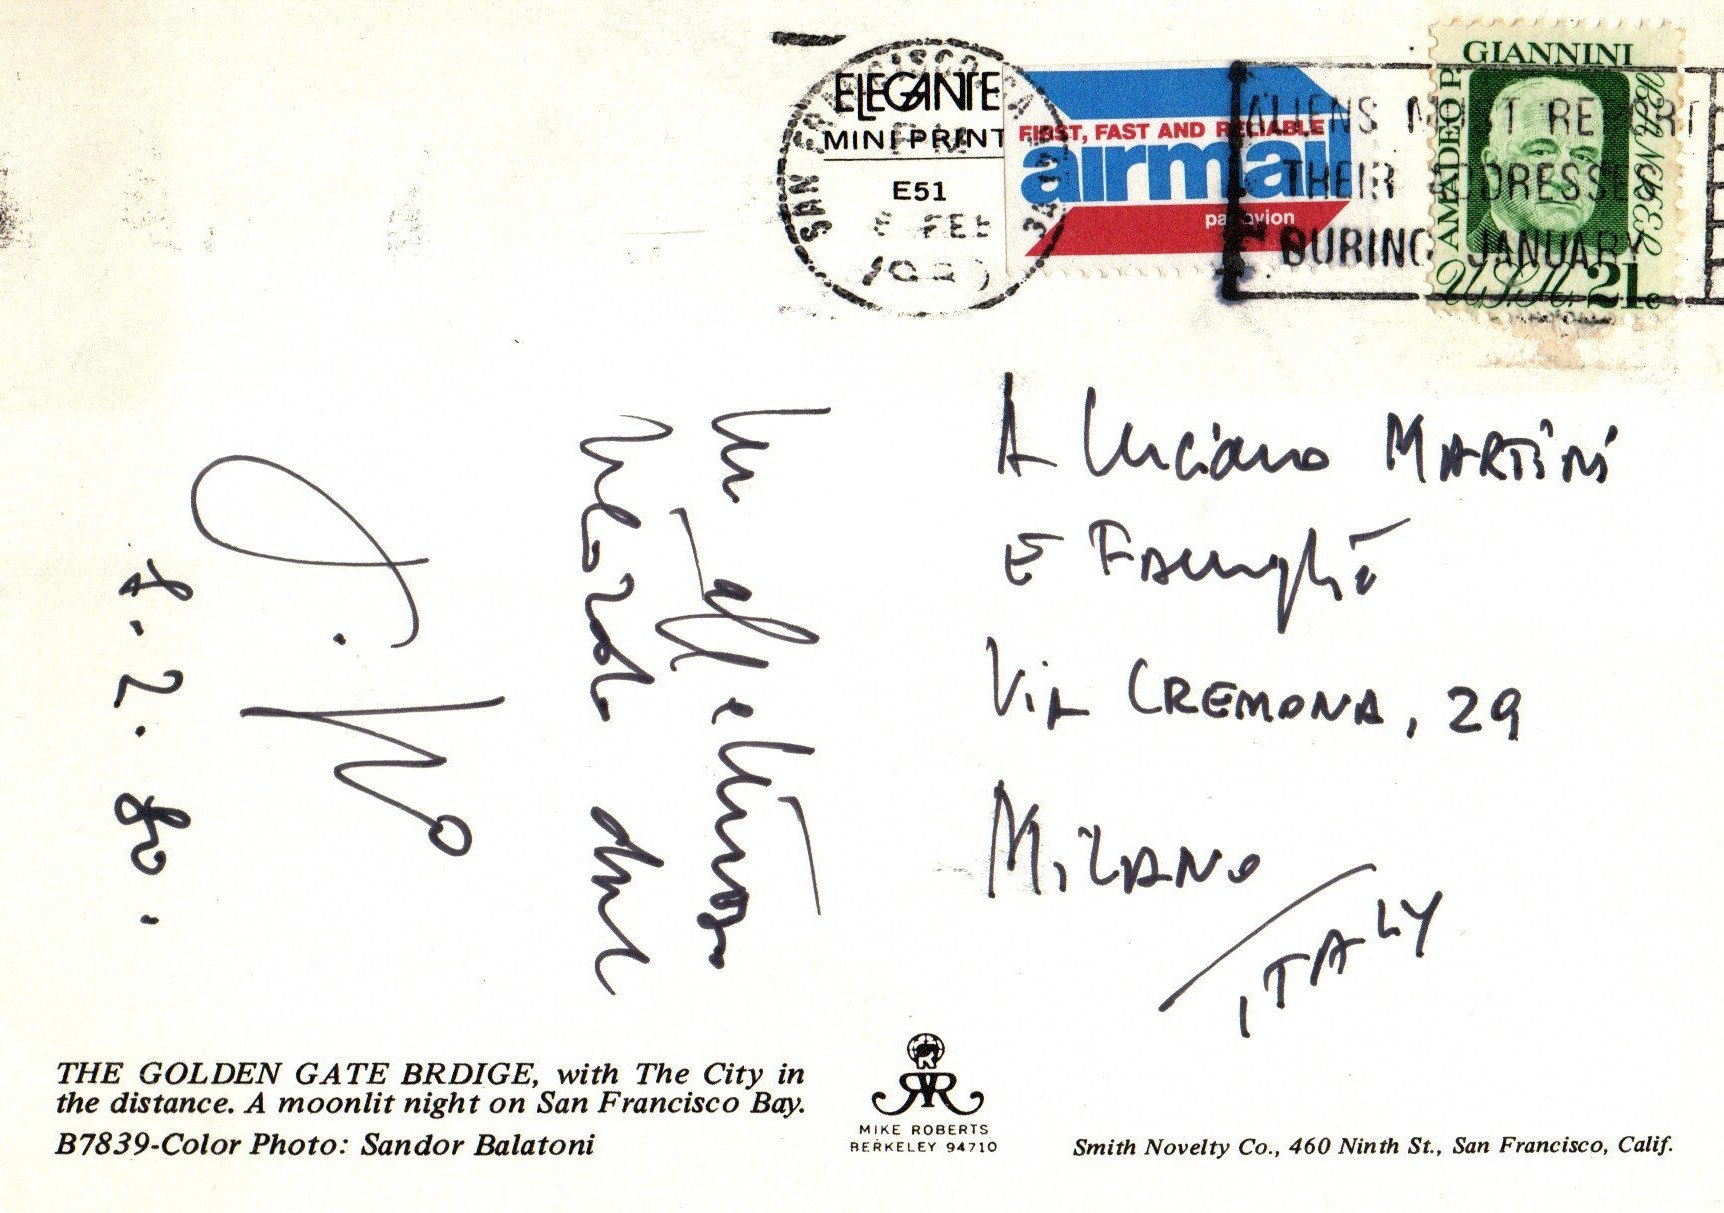 ELEGANTE
MINI PRINT
E51
SAN FRANCISCO CA
PM
FEB
FIRST, FAST AND RELIABLE
airmail
par avion
ALIENS MUST REPORT
THEIR ADDRESSES
DURING JANUARY
GIANNINI
AMADEO P.
U.S.A. 21c
A Luciano MARTINI
E FAMIGLIA
VIA CREMONA, 29
MILANO
ITALY
Un affettuoso
ricordo dal
8.2.80.
THE GOLDEN GATE BRDIGE, with The City in
the distance. A moonlit night on San Francisco Bay.
B7839-Color Photo: Sandor Balatoni
MIKE ROBERTS
BERKELEY 94710
Smith Novelty Co., 460 Ninth St., San Francisco, Calif.